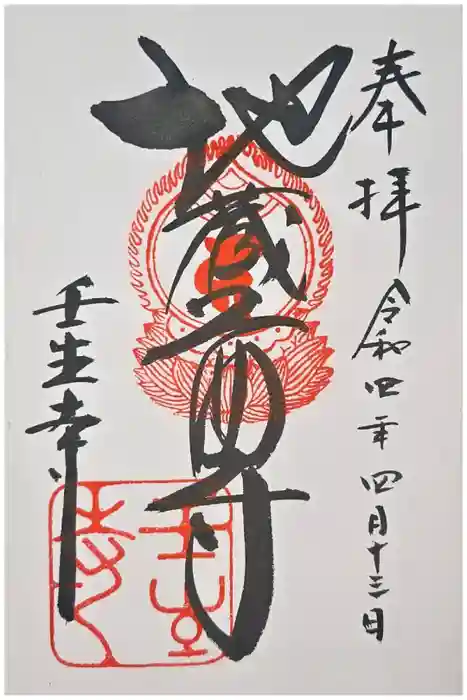 奉拝
令和四年四月十三日
地蔵尊
壬生寺